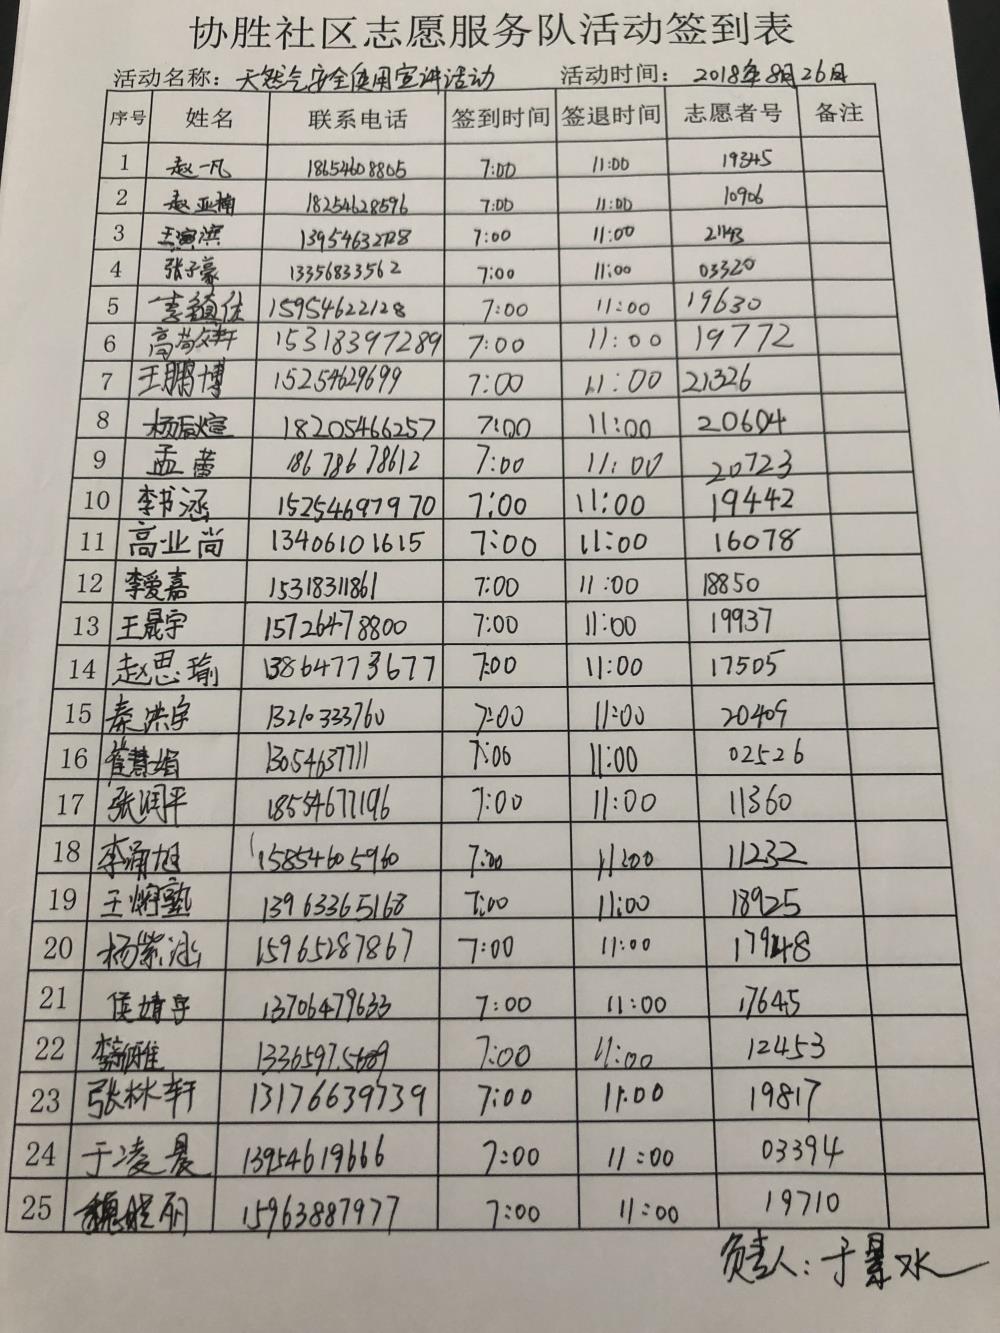 协胜社区志愿服务队活动签到表
活动名称：天然气安全使用宣讲活动 活动时间：2018年8月26日
序号 姓名 联系电话 签到时间 签退时间 志愿者号 备注
1 赵一凡 18654608805 7:00 11:00 19345
2 赵亚楠 18254628596 7:00 11:00 10906
3 王寅滨 7:00 11:00
4 张子豪 13356833562 7:00 11:00 03320
5 李镇佐 15954622128 7:00 11:00 19630
6 高尚轩 15318397289 7:00 11:00 19772
7 王鹏博 15254629699 7:00 11:00 21326
8 杨辰煊 18205466257 7:00 11:00 20604
9 孟蕾 18678678612 7:00 11:00 20723
10 李书涵 15254697970 7:00 11:00 19442
11 高业尚 13406101615 7:00 11:00 16078
12 李爱嘉 15318311861 7:00 11:00 18850
13 王晟宇 15726478800 7:00 11:00 19937
14 赵思瑜 13864773677 7:00 11:00 17505
15 秦洪宇 13210333760 7:00 11:00 20409
16 崔慧娟 13054637711 7:00 11:00 02526
17 张润平 18554677196 7:00 11:00 11360
18 李涌旭 15854605960 7:00 11:00 11232
19 王 13963365168 7:00 11:00 18925
20 杨紫涵 15965287867 7:00 11:00 17948
21 侯婧宇 13706479633 7:00 11:00 17645
22 李 7:00 11:00 12453
23 张林轩 13176639739 7:00 11:00 19817
24 于凌晨 13954619666 7:00 11:00 03394
25 15963887977 7:00 11:00 19710
负责人：于景水